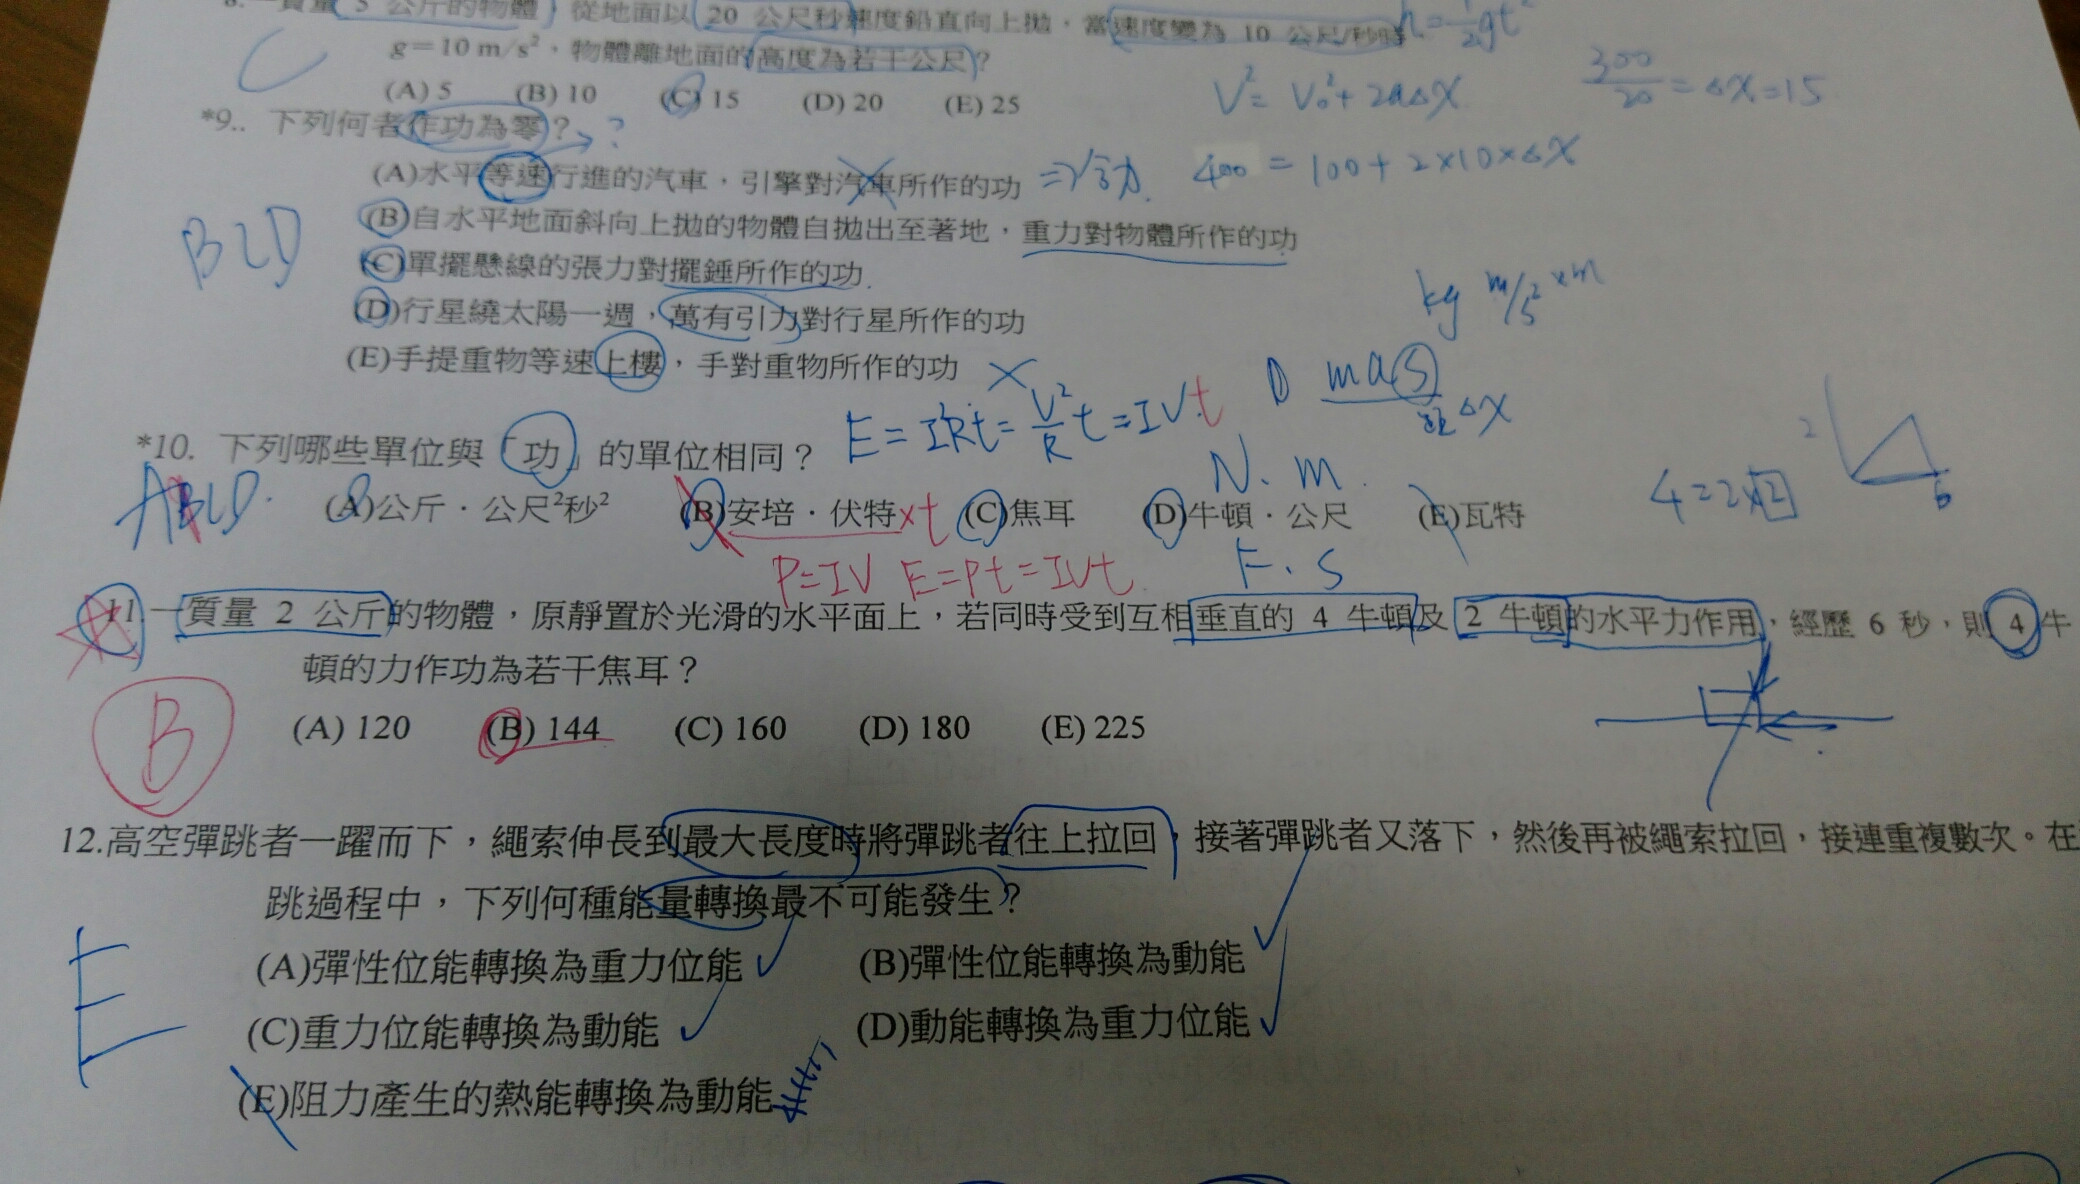 8. 一質量 5 公斤的物體 從地面以 20 公尺秒速度鉛直向上拋，當速度變為 10 公尺/秒時 h=½gt²
g＝10 m/s²，物體離地面的高度為若干公尺？
C (A) 5 (B) 10 (C) 15 (D) 20 (E) 25
V²= V₀²+2a△X
300/20 = △X=15
*9.. 下列何者作功為零？ ?
(A)水平等速行進的汽車，引擎對汽車所作的功
400 = 100+2×10×△X
BCD (B)自水平地面斜向上拋的物體自拋出至著地，重力對物體所作的功
(C)單擺懸線的張力對擺錘所作的功.
(D)行星繞太陽一週，萬有引力對行星所作的功
kg m/s² ×m
(E)手提重物等速上樓，手對重物所作的功 ×
D ma(S) 距△X
E=I²Rt=V²/R t=IVt
*10. 下列哪些單位與「功」的單位相同？
N．m
ABCD. (A)公斤．公尺²秒² (B)安培．伏特×t (C)焦耳 (D)牛頓．公尺 (E)瓦特
4=2×2 2 6
P=IV E=Pt=IVt F.S
11.一質量 2 公斤的物體，原靜置於光滑的水平面上，若同時受到互相垂直的 4 牛頓及 2 牛頓的水平力作用，經歷 6 秒，則 4 牛
頓的力作功為若干焦耳？
B (A) 120 (B) 144 (C) 160 (D) 180 (E) 225
12.高空彈跳者一躍而下，繩索伸長到最大長度時將彈跳者往上拉回，接著彈跳者又落下，然後再被繩索拉回，接連重複數次。在
跳過程中，下列何種能量轉換最不可能發生？
E (A)彈性位能轉換為重力位能 (B)彈性位能轉換為動能
(C)重力位能轉換為動能 (D)動能轉換為重力位能
(E)阻力產生的熱能轉換為動能